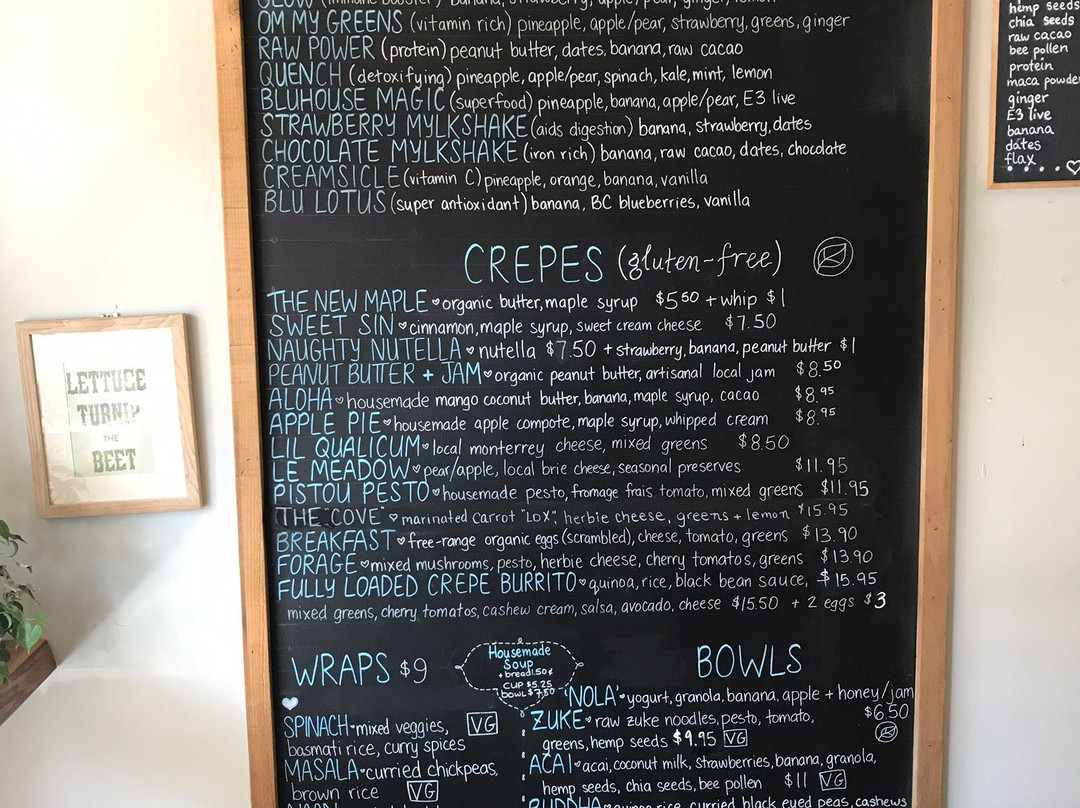 OM MY GREENS (vitamin rich) pineapple, apple/pear, strawberry, greens, ginger
RAW POWER (protein) peanut butter, dates, banana, raw cacao
QUENCH (detoxifying) pineapple, apple/pear, spinach, kale, mint, lemon
BLUHOUSE MAGIC (superfood) pineapple, banana, apple/pear, E3 live
STRAWBERRY MYLKSHAKE (aids digestion) banana, strawberry, dates
CHOCOLATE MYLKSHAKE (iron rich) banana, raw cacao, dates, chocolate
CREAMSICLE (vitamin C) pineapple, orange, banana, vanilla
BLU LOTUS (super antioxidant) banana, BC blueberries, vanilla
CREPES (gluten-free)
THE NEW MAPLE organic butter, maple syrup $5.50 + whip $1
SWEET SIN cinnamon, maple syrup, sweet cream cheese $7.50
NAUGHTY NUTELLA nutella $7.50 + strawberry, banana, peanut butter $1
PEANUT BUTTER + JAM organic peanut butter, artisanal local jam $8.50
ALOHA housemade mango coconut butter, banana, maple syrup, cacao $8.95
APPLE PIE housemade apple compote, maple syrup, whipped cream $8.95
LIL QUALICUM local monterrey cheese, mixed greens $8.50
LE MEADOW pear/apple, local brie cheese, seasonal preserves $11.95
PISTOU PESTO housemade pesto, fromage frais tomato, mixed greens $11.95
THE "COVE" marinated carrot "LOX", herbie cheese, greens + lemon $15.95
BREAKFAST free-range organic eggs (scrambled), cheese, tomato, greens $13.90
FORAGE mixed mushrooms, pesto, herbie cheese, cherry tomatos, greens $13.90
FULLY LOADED CREPE BURRITO quinoa, rice, black bean sauce, $15.95
mixed greens, cherry tomatos, cashew cream, salsa, avocado, cheese $15.50 + 2 eggs $3
WRAPS $9
SPINACH mixed veggies, VG
basmati rice, curry spices
MASALA curried chickpeas,
brown rice VG
Housemade
Soup
+ bread 1.50¢
CUP $5.25
bowl $7.50
BOWLS
'NOLA' yogurt, granola, banana, apple + honey/jam
$6.50
ZUKE raw zuke noodles, pesto, tomato,
greens, hemp seeds $9.95 VG
ACAI acai, coconut milk, strawberries, banana, granola,
hemp seeds, chia seeds, bee pollen $11 VG
BUDDHA quinoa, rice, curried black eyed peas, cashews
hemp seeds
chia seeds
raw cacao
bee pollen
protein
maca powder
ginger
E3 live
banana
dates
flax
LETTUCE
TURNIP
THE
BEET